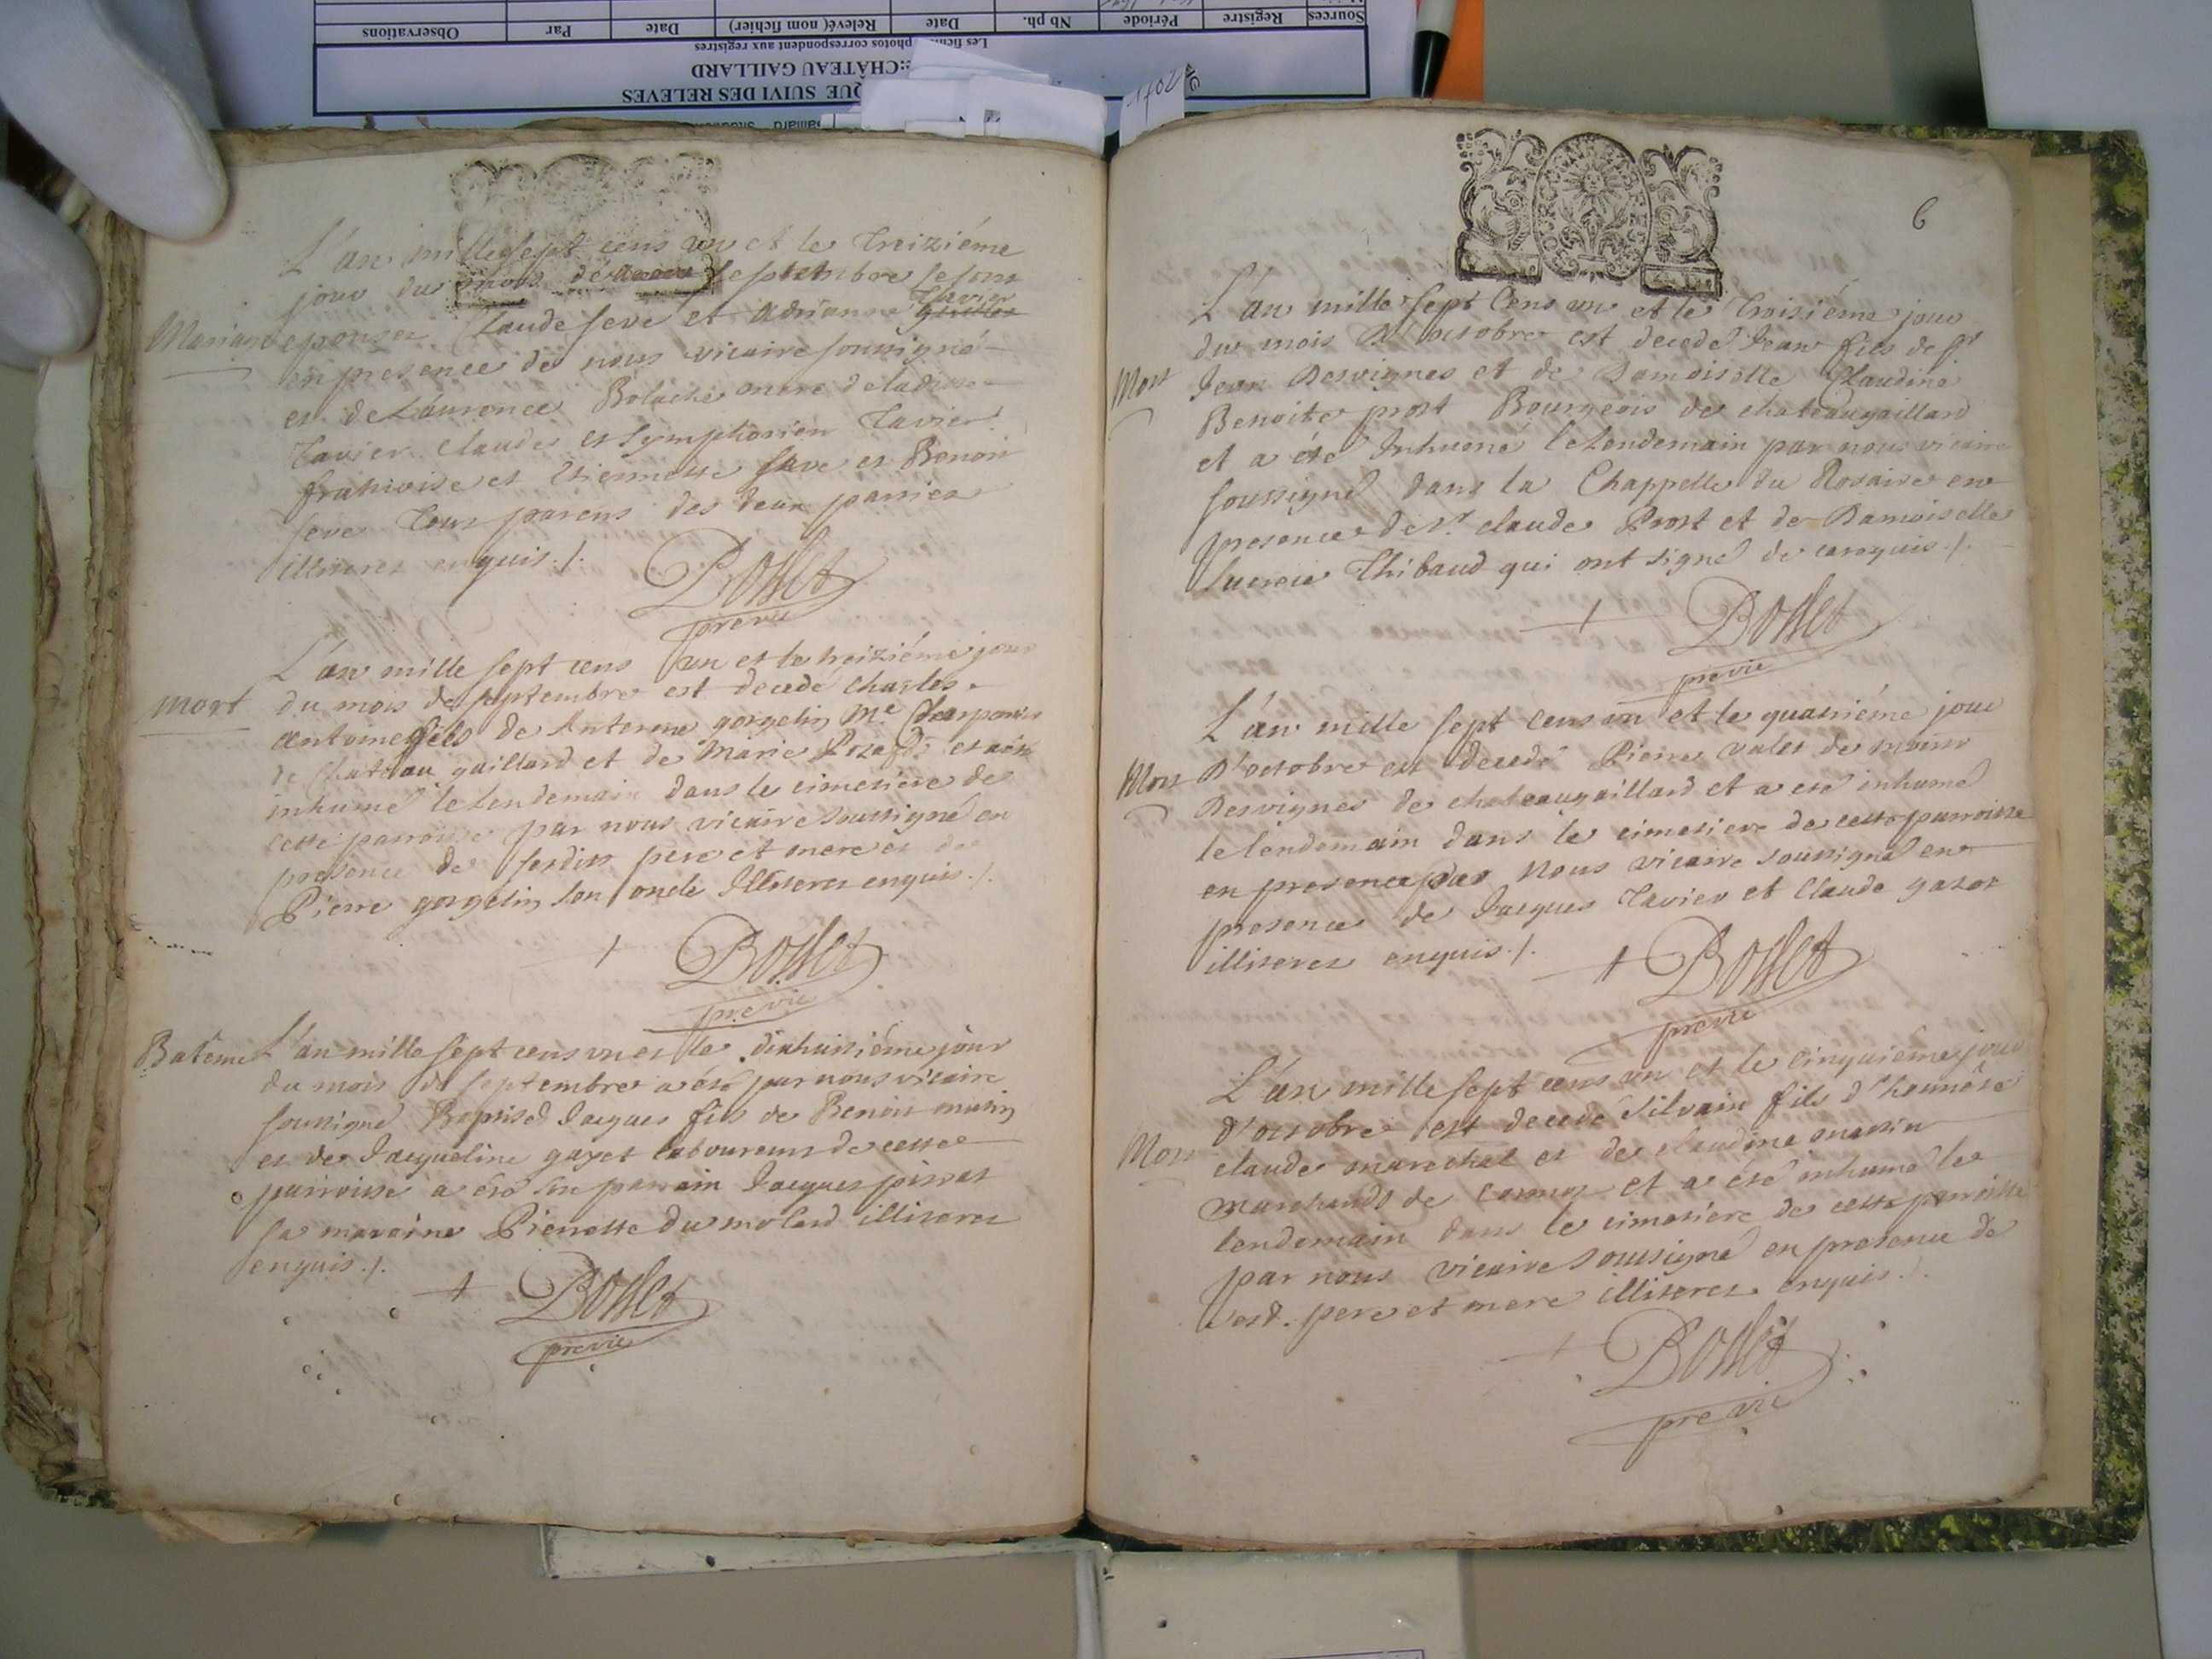 Sources Registre Période Nb ph. Date Relevé (nom fichier) Date Par Observations
Les photos correspondent aux registres
CHÂTEAU GAILLARD
QUE SUIVI DES RELEVES
1702
L'an mille sept cens un et le treizième
jour du mois dé septembre se sont
Tavier
Mariage epousez Claude seve et Adrianne
en presence de nous vicaire soussigné
et de Laurence mere de ladite
Tavier Claude et symphorien Tavier
francoise et Etiennette seve et Benoit
seve tous parens des deux parties
illiterez enquis ./.
Bosset
pre vic
L'an mille sept cens un et le treizième jour
mort du mois de septembre est decedé charles
antoine fils de Antoenne gorgelin Me Charpentier
de Chateau gaillard et de Marie et a été
inhumé le Lendemain dans le cimetiere de
cette parroisse par nous vicaire soussigné en
presence de sesdits pere et mere et de
Pierre gorgelin son oncle Illiterez enquis ./.
+ Bosset
pre vic
Batême L'an mille sept cens un et le dixhuitiéme jour
du mois de septembre a été par nous vicaire
soussigné Baptisé Jacques fils de Benoit mutin
et de Jacqueline gayet laboureurs de cette
parroisse a été son parrain Jacques
sa maraine Pierrette du molard illiterez
enquis ./.
+ Bosset
pre vic
6
L'an mille sept Cens un et le troisiéme jour
du mois d'octobre est decedé Jean fils de Sr
Mort Jean Desvignes et de Damoiselle Claudine
Benoite prost Bourgeois de chateaugaillard
et a été Inhumé le Lendemain par nous vicaire
soussigné dans la Chappelle du Rosaire en
presence de Sr. claude Prost et de Damoiselle
Lucrece Thibaud qui ont signé de ce requis ./.
+ Bosset
pre vic
L'an mille sept cens un et le quatriéme jour
Mort d'octobre est decedé Pierre valet de monsr
Desvignes de chateaugaillard et a eté inhumé
le lendemain dans le cimetiere de cette parroisse
en presence par Nous vicaire soussigné en
presence de Jacques Tavier et Claude
illiterez enquis ./.
+ Bosset
pre vic
L'an mille sept cens un et le cinquiéme jour
d'octobre est decedé silvain fils d'honnéte
Mort claude marechal et de claudine
marchands de et a été inhumé le
lendemain dans le cimetiere de cette parroisse
par nous vicaire soussigné en presence de
sesd. pere et mere illiterez enquis ./.
+ Bosset
pre vic